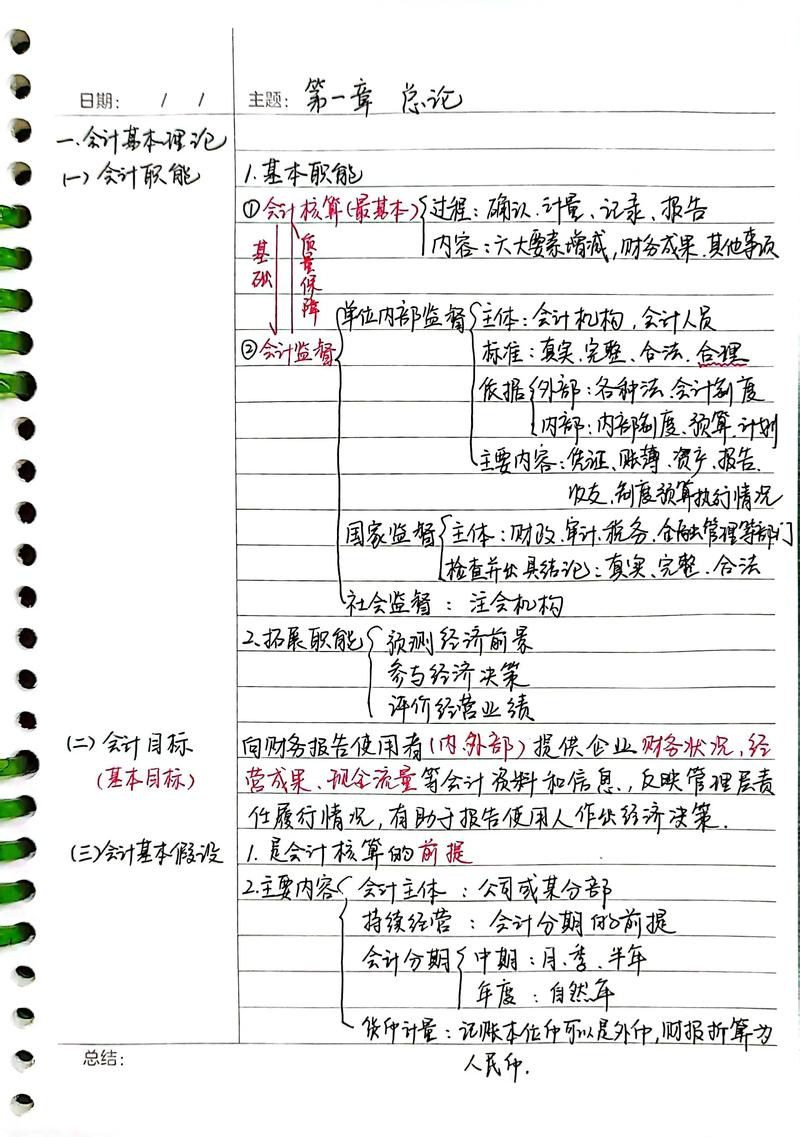 日期: / / 主题: 第一章 总论
一.会计基本理论
(一) 会计职能 1.基本职能
①会计核算(最基本) 过程:确认.计量、记录、报告
内容:六大要素增减,财务成果.其他事项
基础 质量保障
单位内部监督 主体:会计机构,会计人员
②会计监督 标准:真实.完整、合法.合理
依据 外部:各种法.会计制度
内部:内部制度、预算.计划
主要内容:凭证、账薄、资产、报告、
收支、制度预算执行情况
国家监督 主体:财政.审计.税务.金融管理等部门
检查并出具结论:真实、完整、合法
社会监督:注会机构
2.拓展职能 预测经济前景
参与经济决策
评价经营业绩
(二) 会计目标 向财务报告使用者(内.外部)提供企业财务状况,经
(基本目标) 营成果、现金流量等会计资料和信息,反映管理层责
任履行情况,有助于报告使用人作出经济决策.
(三)会计基本假设 1.是会计核算的前提
2.主要内容 会计主体:公司或某分部
持续经营:会计分期的前提
会计分期 中期:月、季、半年
年度:自然年
货币计量:记账本位币可以是外币,财报折算为
总结: 人民币.